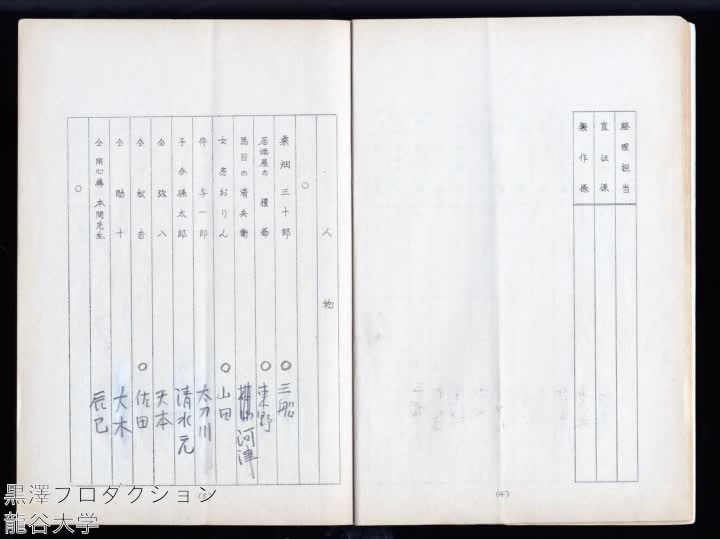 経理担当
宣伝係
製作係
(4)
人物
○
桑畑三十郎 ○三船
居酒屋の権爺 ○東野
馬目の清兵衛 河津
女房おりん ○山田
伜与一郎 太刀川
子分孫太郎 清水元
仝弥八 天本
仝松吉 ○佐田
仝助十 大木
仝用心棒本間先生 辰巳
○
黒澤プロダクション
龍谷大学